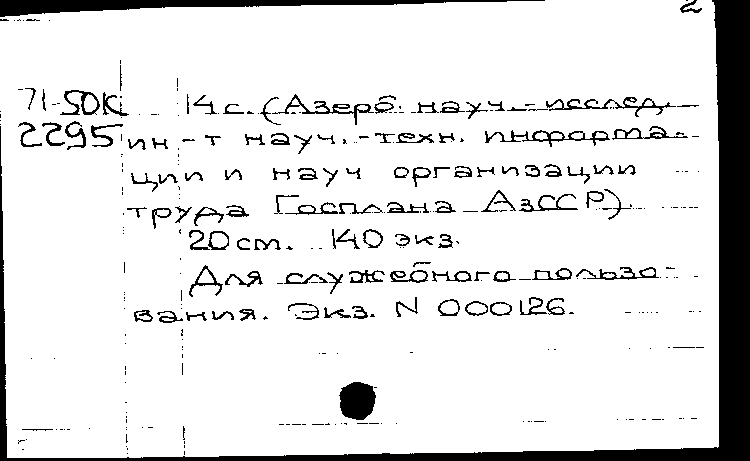 2
71-50К 14 с. (Азерб. науч.-исслед.
2295 ин-т науч.-техн. информа-
ции и науч организации
труда Госплана АзССР).
20 см. 140 экз.
Для служебного пользо-
вания. Экз. N 000126.